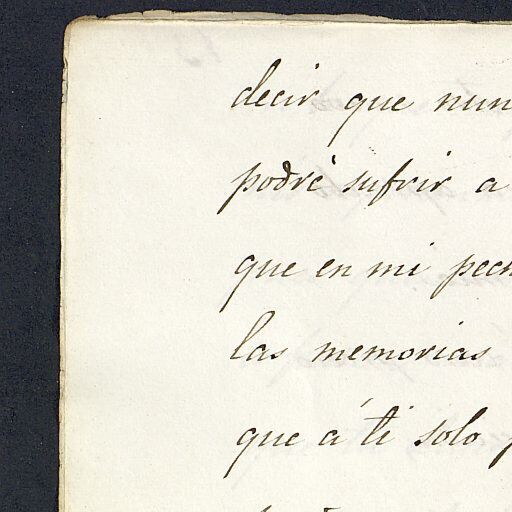 decir que nun
podré sufrir a
que en mi pech
las memorias
que á ti solo